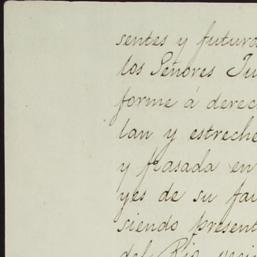 sentes y futuro
los Señores Ju
forme á derec
lan y estreche
y pasada en
yes de su fa
siendo present
del Rio veci